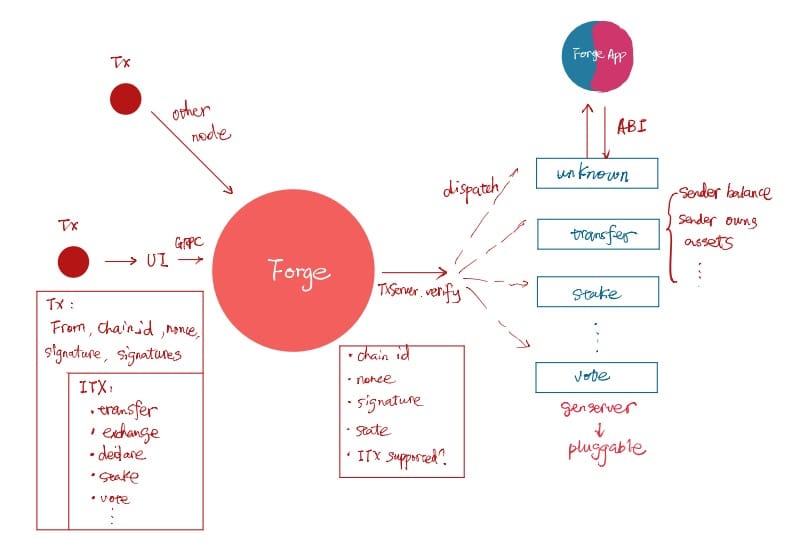 Tx
other
node
Tx
UI
GRPC
Forge
Tx:
From, chain_id, nonce,
signature, signatures
ITX:
• transfer
• exchange
• declare
• stake
• vote
⋮
TxServer.verify
• chain id
• nonce
• signature
• state
• ITX supported?
dispatch
Forge App
ABI
unknown
transfer
stake
⋮
vote
sender balance
sender owns
assets
⋮
genserver
pluggable